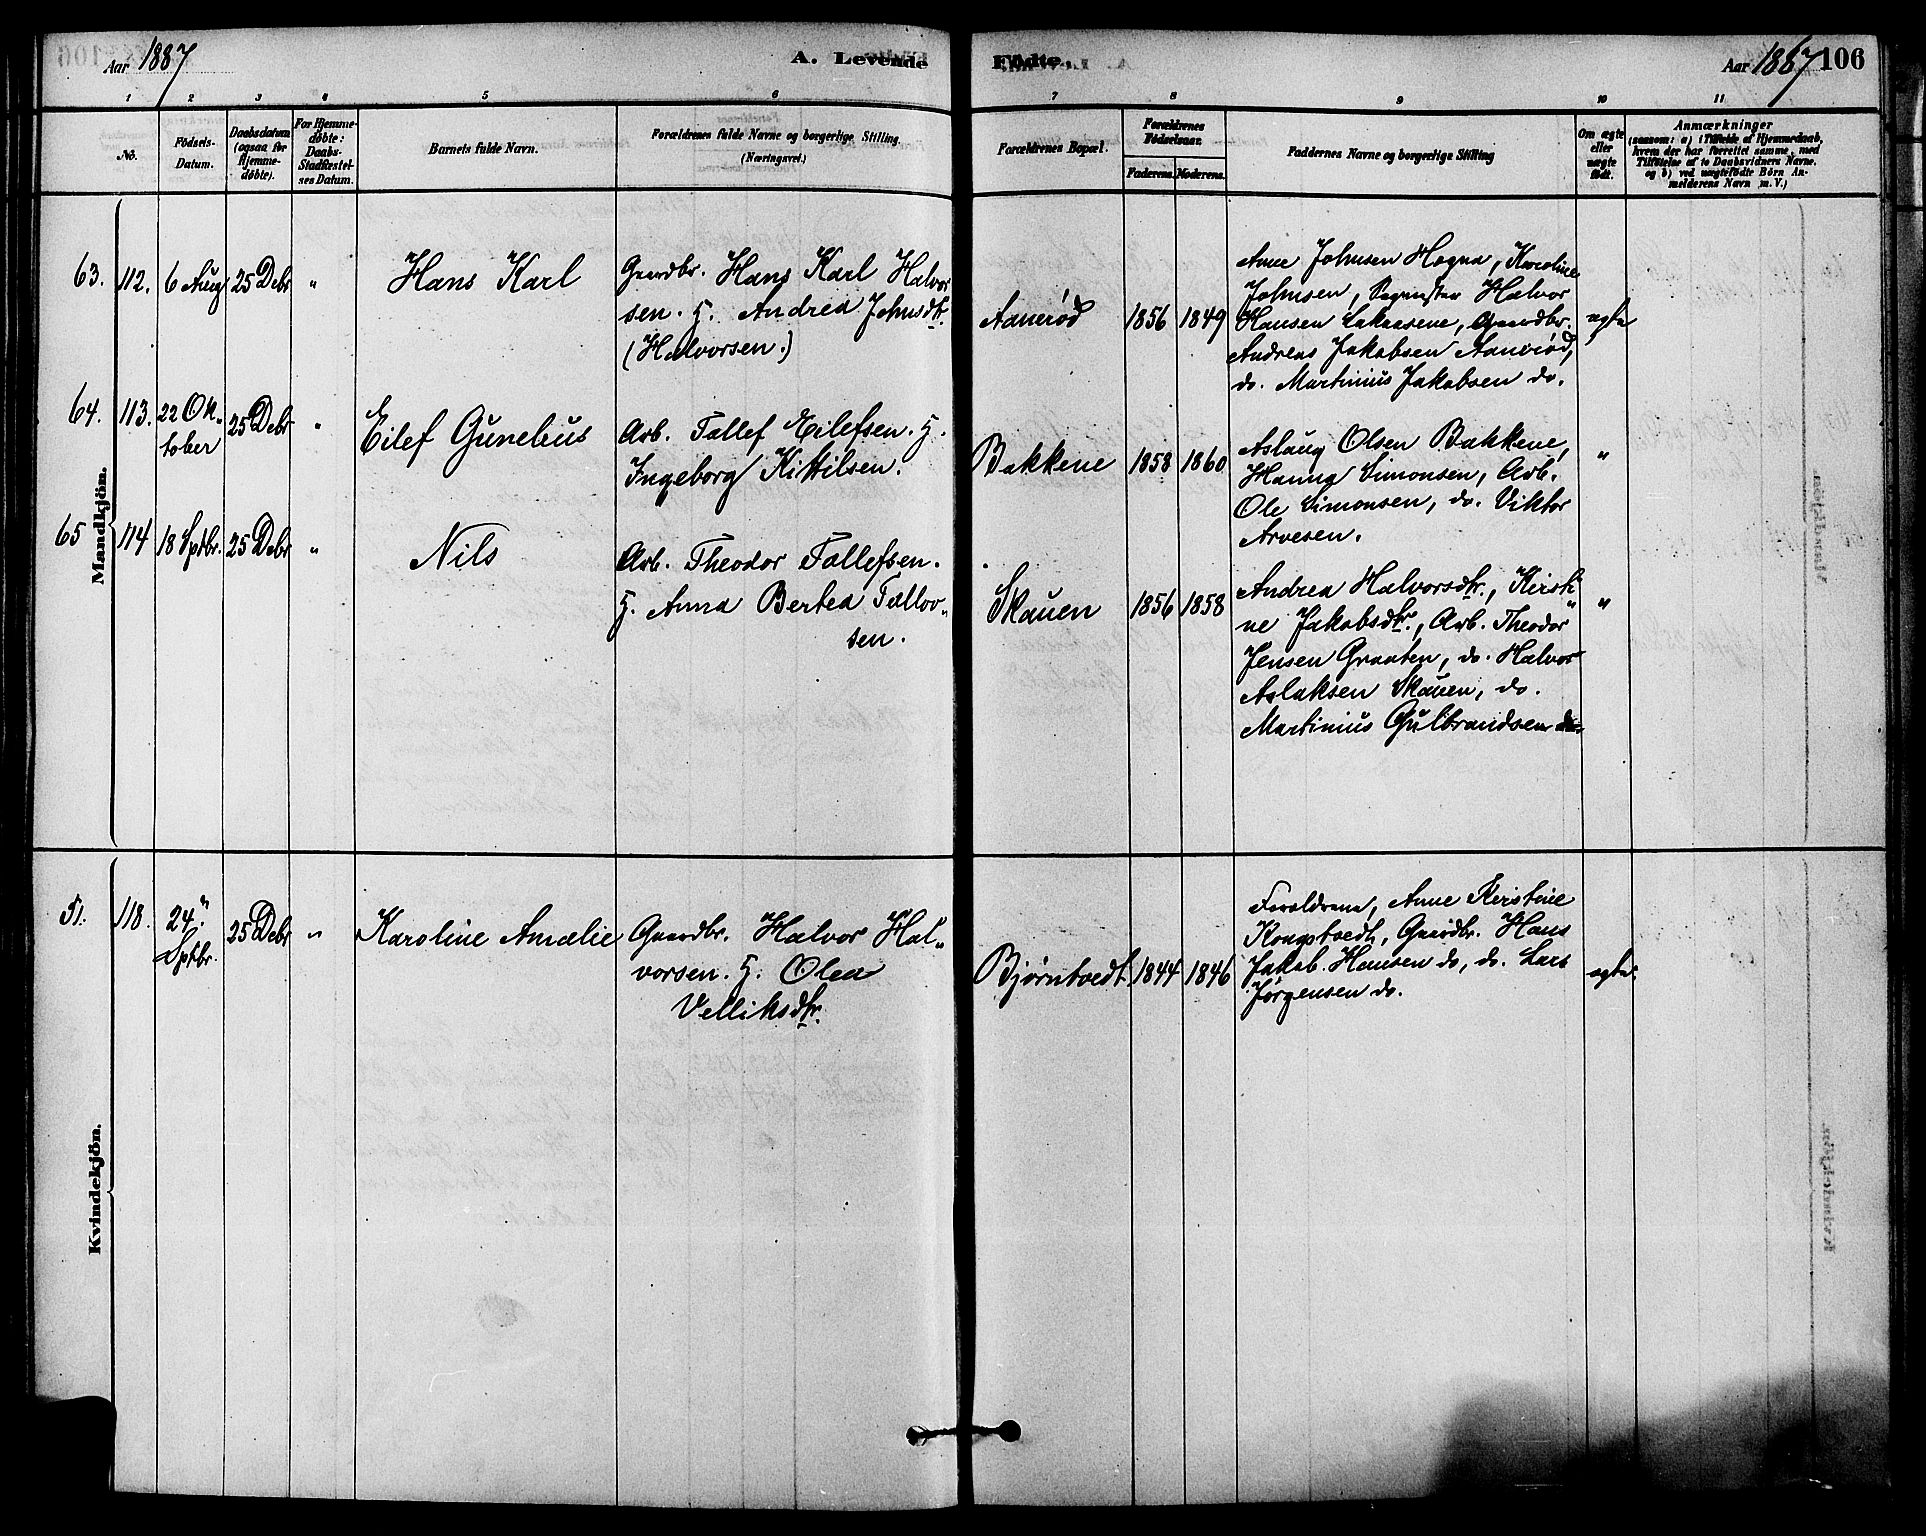 Aar 1887
A. Levende
Fødte.
Aar 1887 106
1 2 3 4 5 6 7 8 9 10 11
No.
Födsels-
Datum.
Daabsdatum
(ogsaa for
Hjemme-
döbte).
For Hjemme-
döbte:
Daabs-
Stadfæstel-
ses Datum.
Barnets fulde Navn.
Forældrenes fulde Navne og borgerlige Stilling
(Næringsvei.)
Forældrenes Bopæl.
Forældrenes
Födselsaar.
Faderens. Moderens.
Faddernes Navne og borgerlige Stilling
Om ægte
eller
uægte
født.
Anmærkninger
(saasom: a) i Tilfælde af Hjemmedaab,
hvem der har forrettet samme, med
Tilföielse af to Daabsvidners Navne,
og b) ved uægtefödte Börn An-
melderens Navn m. V.)
Mandkjön.
63. 112. 6 Aug 25 Debr " Hans Karl
Gaardbr. Hans Karl Halvor
sen. H. Andrea Johnsdtr.
(Halvorsen.)
Aanerød 1856 1849
Anne Johnsen Hogna, Karoline
Johnsen, Halvor
Hansen Gaardbr.
Andreas Jakobsen Aanerød,
do. Martinius Jakobsen do.
ægte
64. 113. 22 Ok-
tober
25 Debr " Eilef Gunelius
Arb. Tallef Eilefsen. H.
Ingeborg Kittilsen.
Bakkene 1858 1860
Aslaug Olsen Bakkene,
Hanna Simonsen, Arb.
Ole Simonsen, do. Viktor
Arvesen.
"
65 114 18 Sptbr. 25 Debr " Nils
Arb. Theodor Tallefsen.
H. Anna Bertea Tallov-
sen.
Skauen 1856 1858
Andrea Halvorsdtr., Kirsti-
ne Jakobsdtr., Arb. Theodor
Jensen Graaten, do. Halvor
Aslaksen Skauen, do.
Martinius Gulbrandsen do.
"
Kvindekjön.
51. 118. 24de
Sptbr.
25 Debr " Karoline Amalie
Gaardbr. Halvor Hal-
vorsen. H. Olea
Velliksdtr.
Bjørntvedt 1844 1846
Forældrene, Anne Kirstine
Kongstvedt, Gaardbr. Hans
Jakob Hansen do, do. Lars
Jørgensen do.
ægte